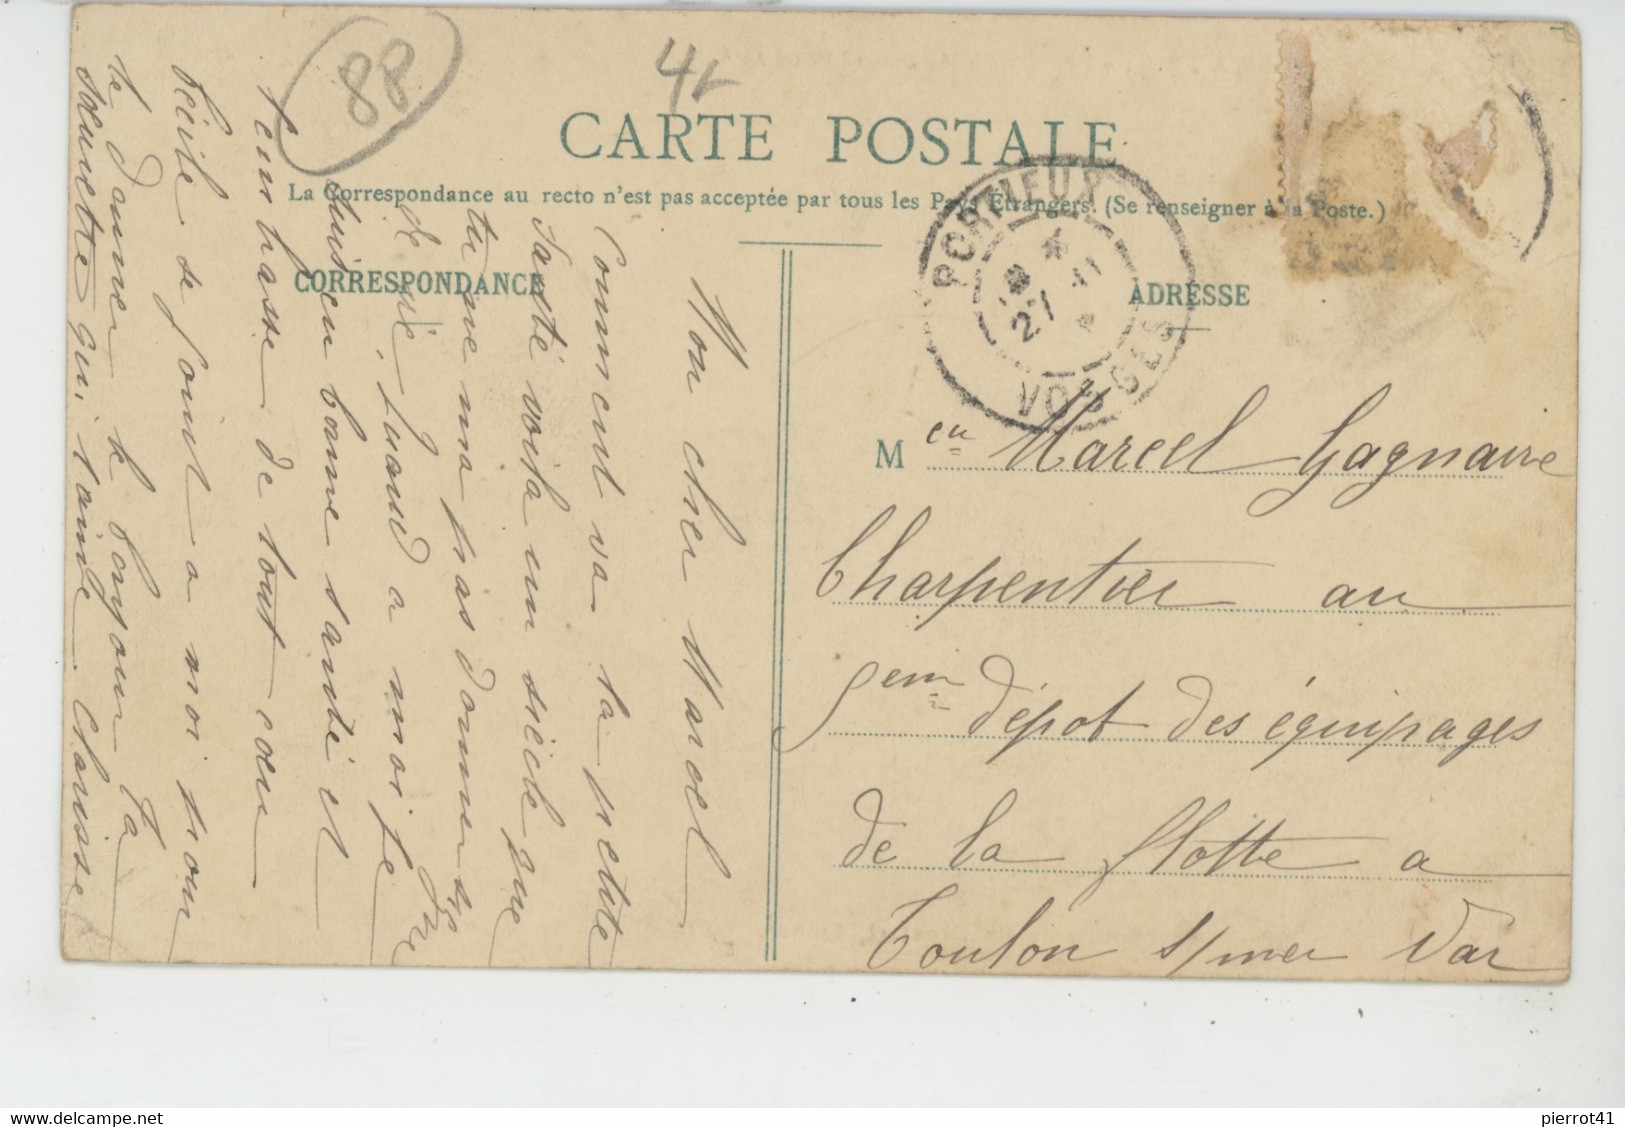 88
4
CARTE POSTALE
La Correspondance au recto n'est pas acceptée par tous les Pays Étrangers. (Se renseigner à la Poste.)
CORRESPONDANCE
ADRESSE
PORTIEUX
27
11
VOSGES
Mon cher Marcel
Comment va ta petite
Santé voila un siècle que
tu ne ma pas donner
de vie, quand a moi je
suis en bonne santé et
tembrasse de tout cœur
Cécile se joint a moi pour
te donner le bonjour Ta
sœurette qui t'aime
M en Marcel Gagnaire
Charpentier au
5em dépot des équipages
de la flotte a
Toulon s/mer Var
pierrot41